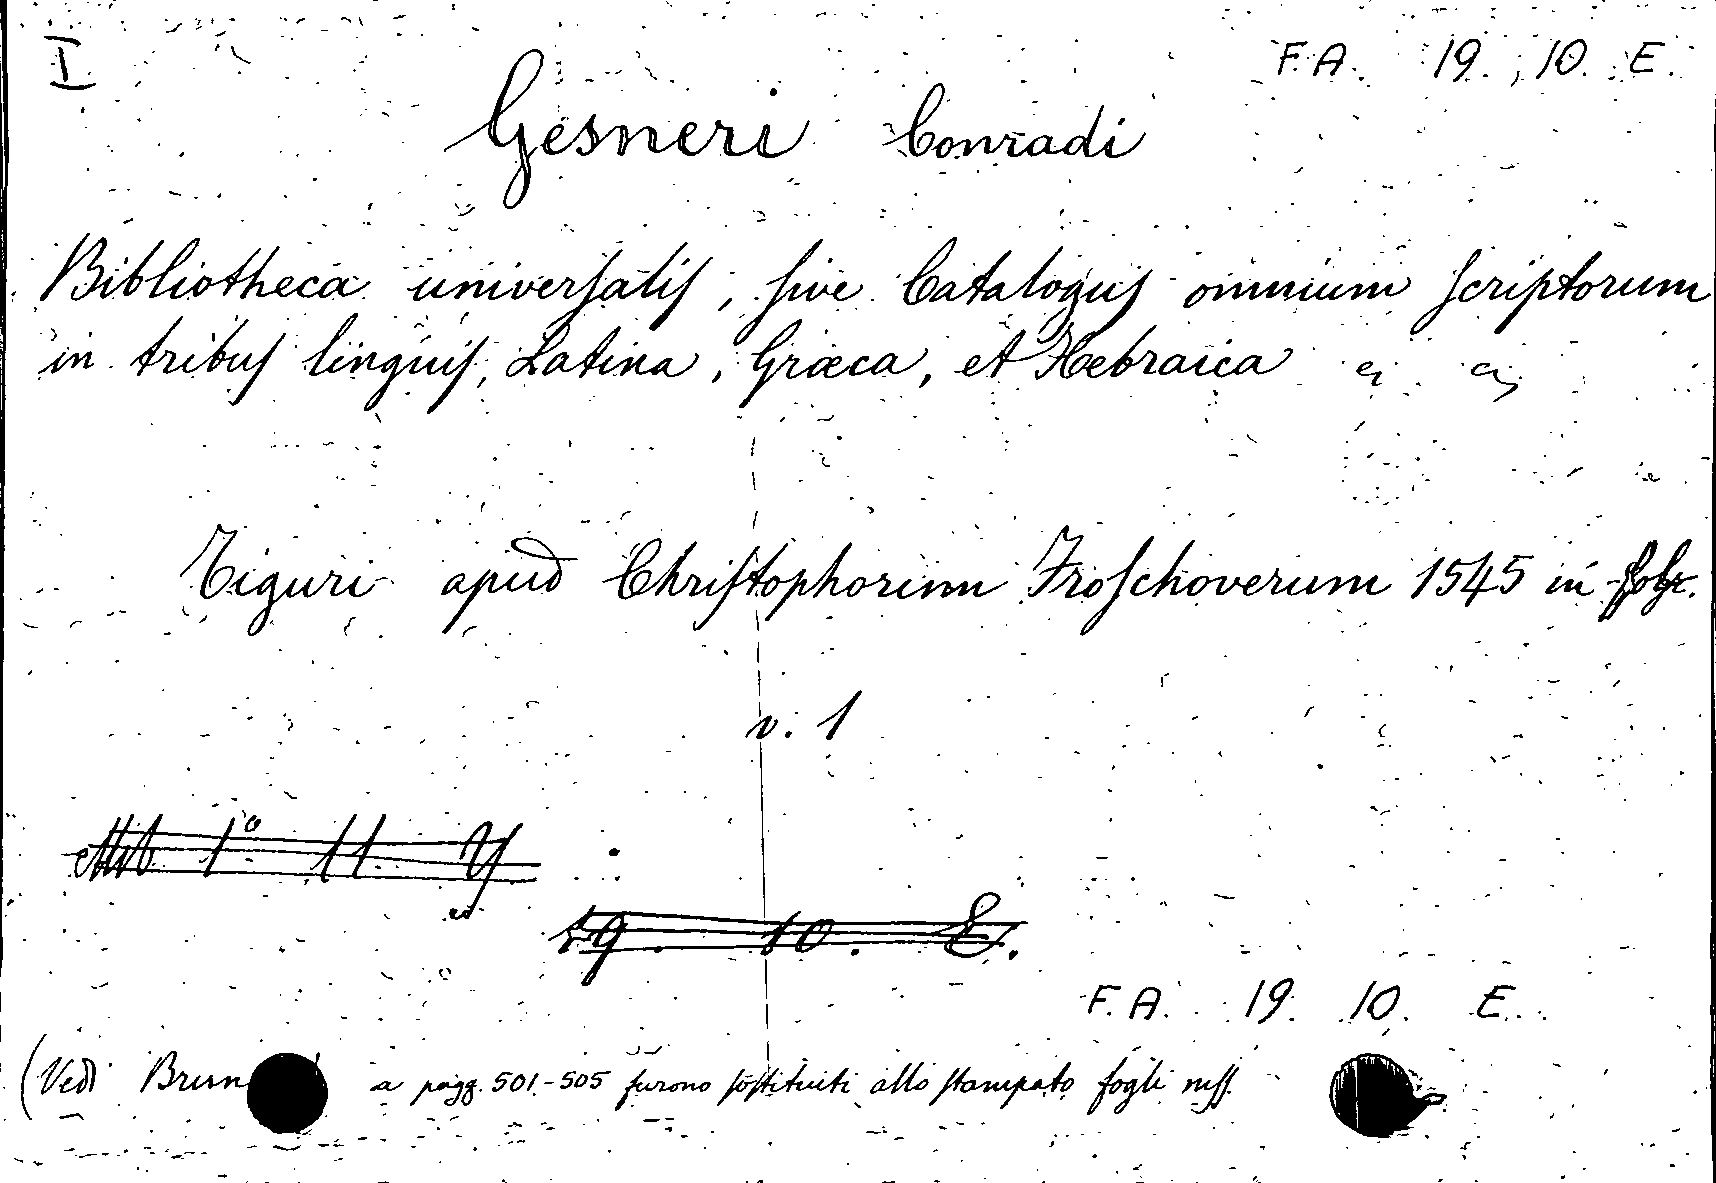 I
F. A. 19. 10. E.
Gesneri Conradi
Bibliotheca universalis, sive Catalogus omnium scriptorum
in tribus linguis, Latina, Græca, et Hebraica
Tiguri apud Christophorum Froschoverum 1545 in fol.
v. 1
1º 11 Y
19. 10. E.
F. A. 19. 10. E.
(Vedi a pagg. 501-505 furono sostituiti allo stampato fogli mss.